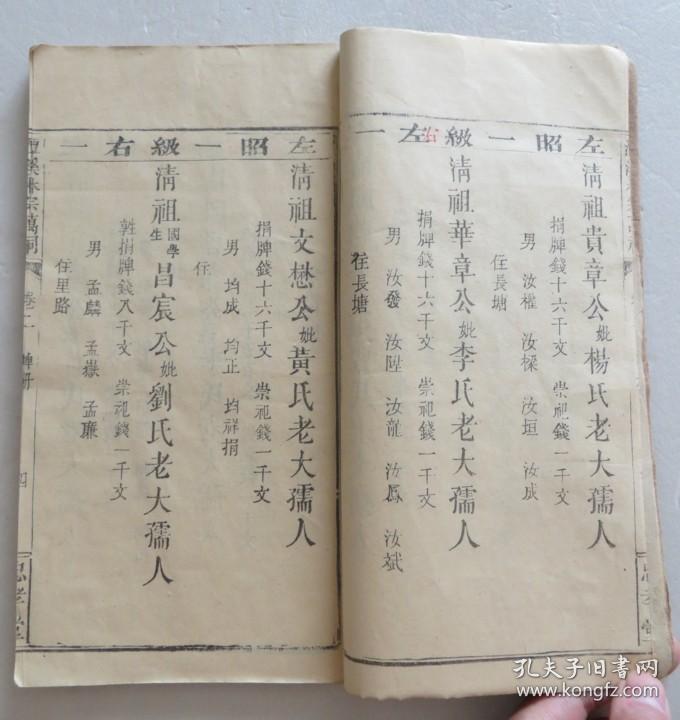 左昭一級左一
右
清祖貴章公妣楊氏老大孺人
捐牌錢十六千文 崇祀錢一千文
男 汝權 汝樑 汝垣 汝成
住長塘
清祖華章公妣李氏老大孺人
捐牌錢十六千文 崇祀錢一千文
男 汝發 汝陞 汝龍 汝鳳 汝斌
住長塘
左昭一級右一
清祖文懋公妣黃氏老大孺人
捐牌錢十六千文 崇祀錢一千文
男 均成 均正 均祥捐
住
清祖國學生昌宸公妣劉氏老大孺人
捐牌錢八千文 崇祀錢一千文
男 孟麟 孟嶽 孟廉
住里路
宗萬祠 卷二 牌冊 四 忠孝堂
孔夫子旧书网
www.kongfz.com